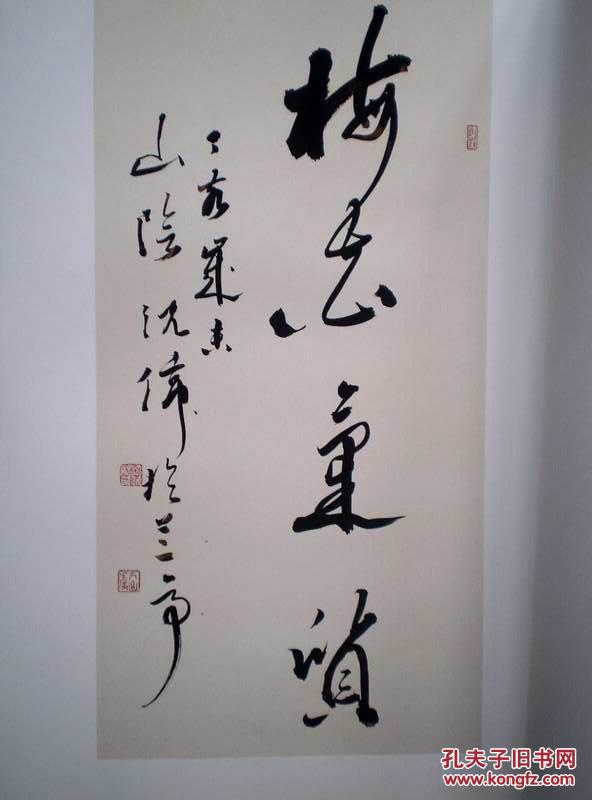 梅志氣質
丁亥歲末
山陰沈偉於兰亭
孔夫子旧书网
www.kongfz.com